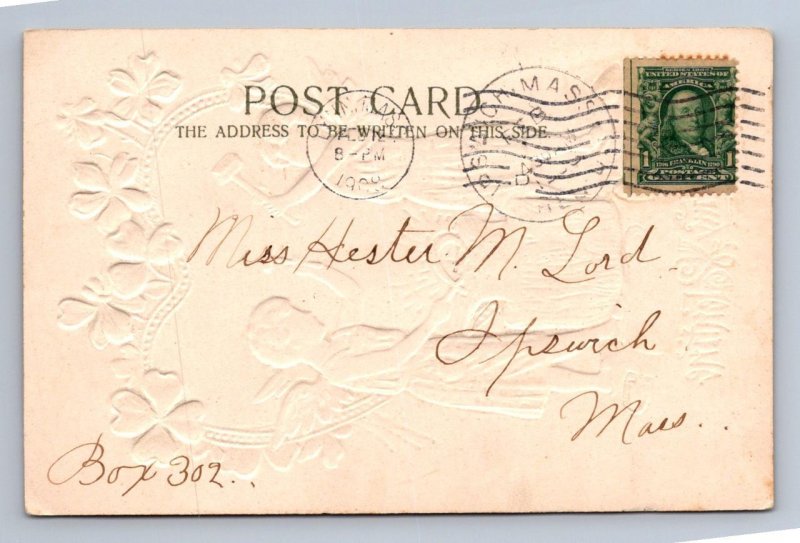 POST CARD
THE ADDRESS TO BE WRITTEN ON THIS SIDE.
MASS
8-PM
1908
SERIES 1902
UNITED STATES OF
AMERICA
FRANKLIN
1 POSTAGE 1
ONE CENT
Miss Hester M. Lord.
Ipswich
Mass..
Box 302..